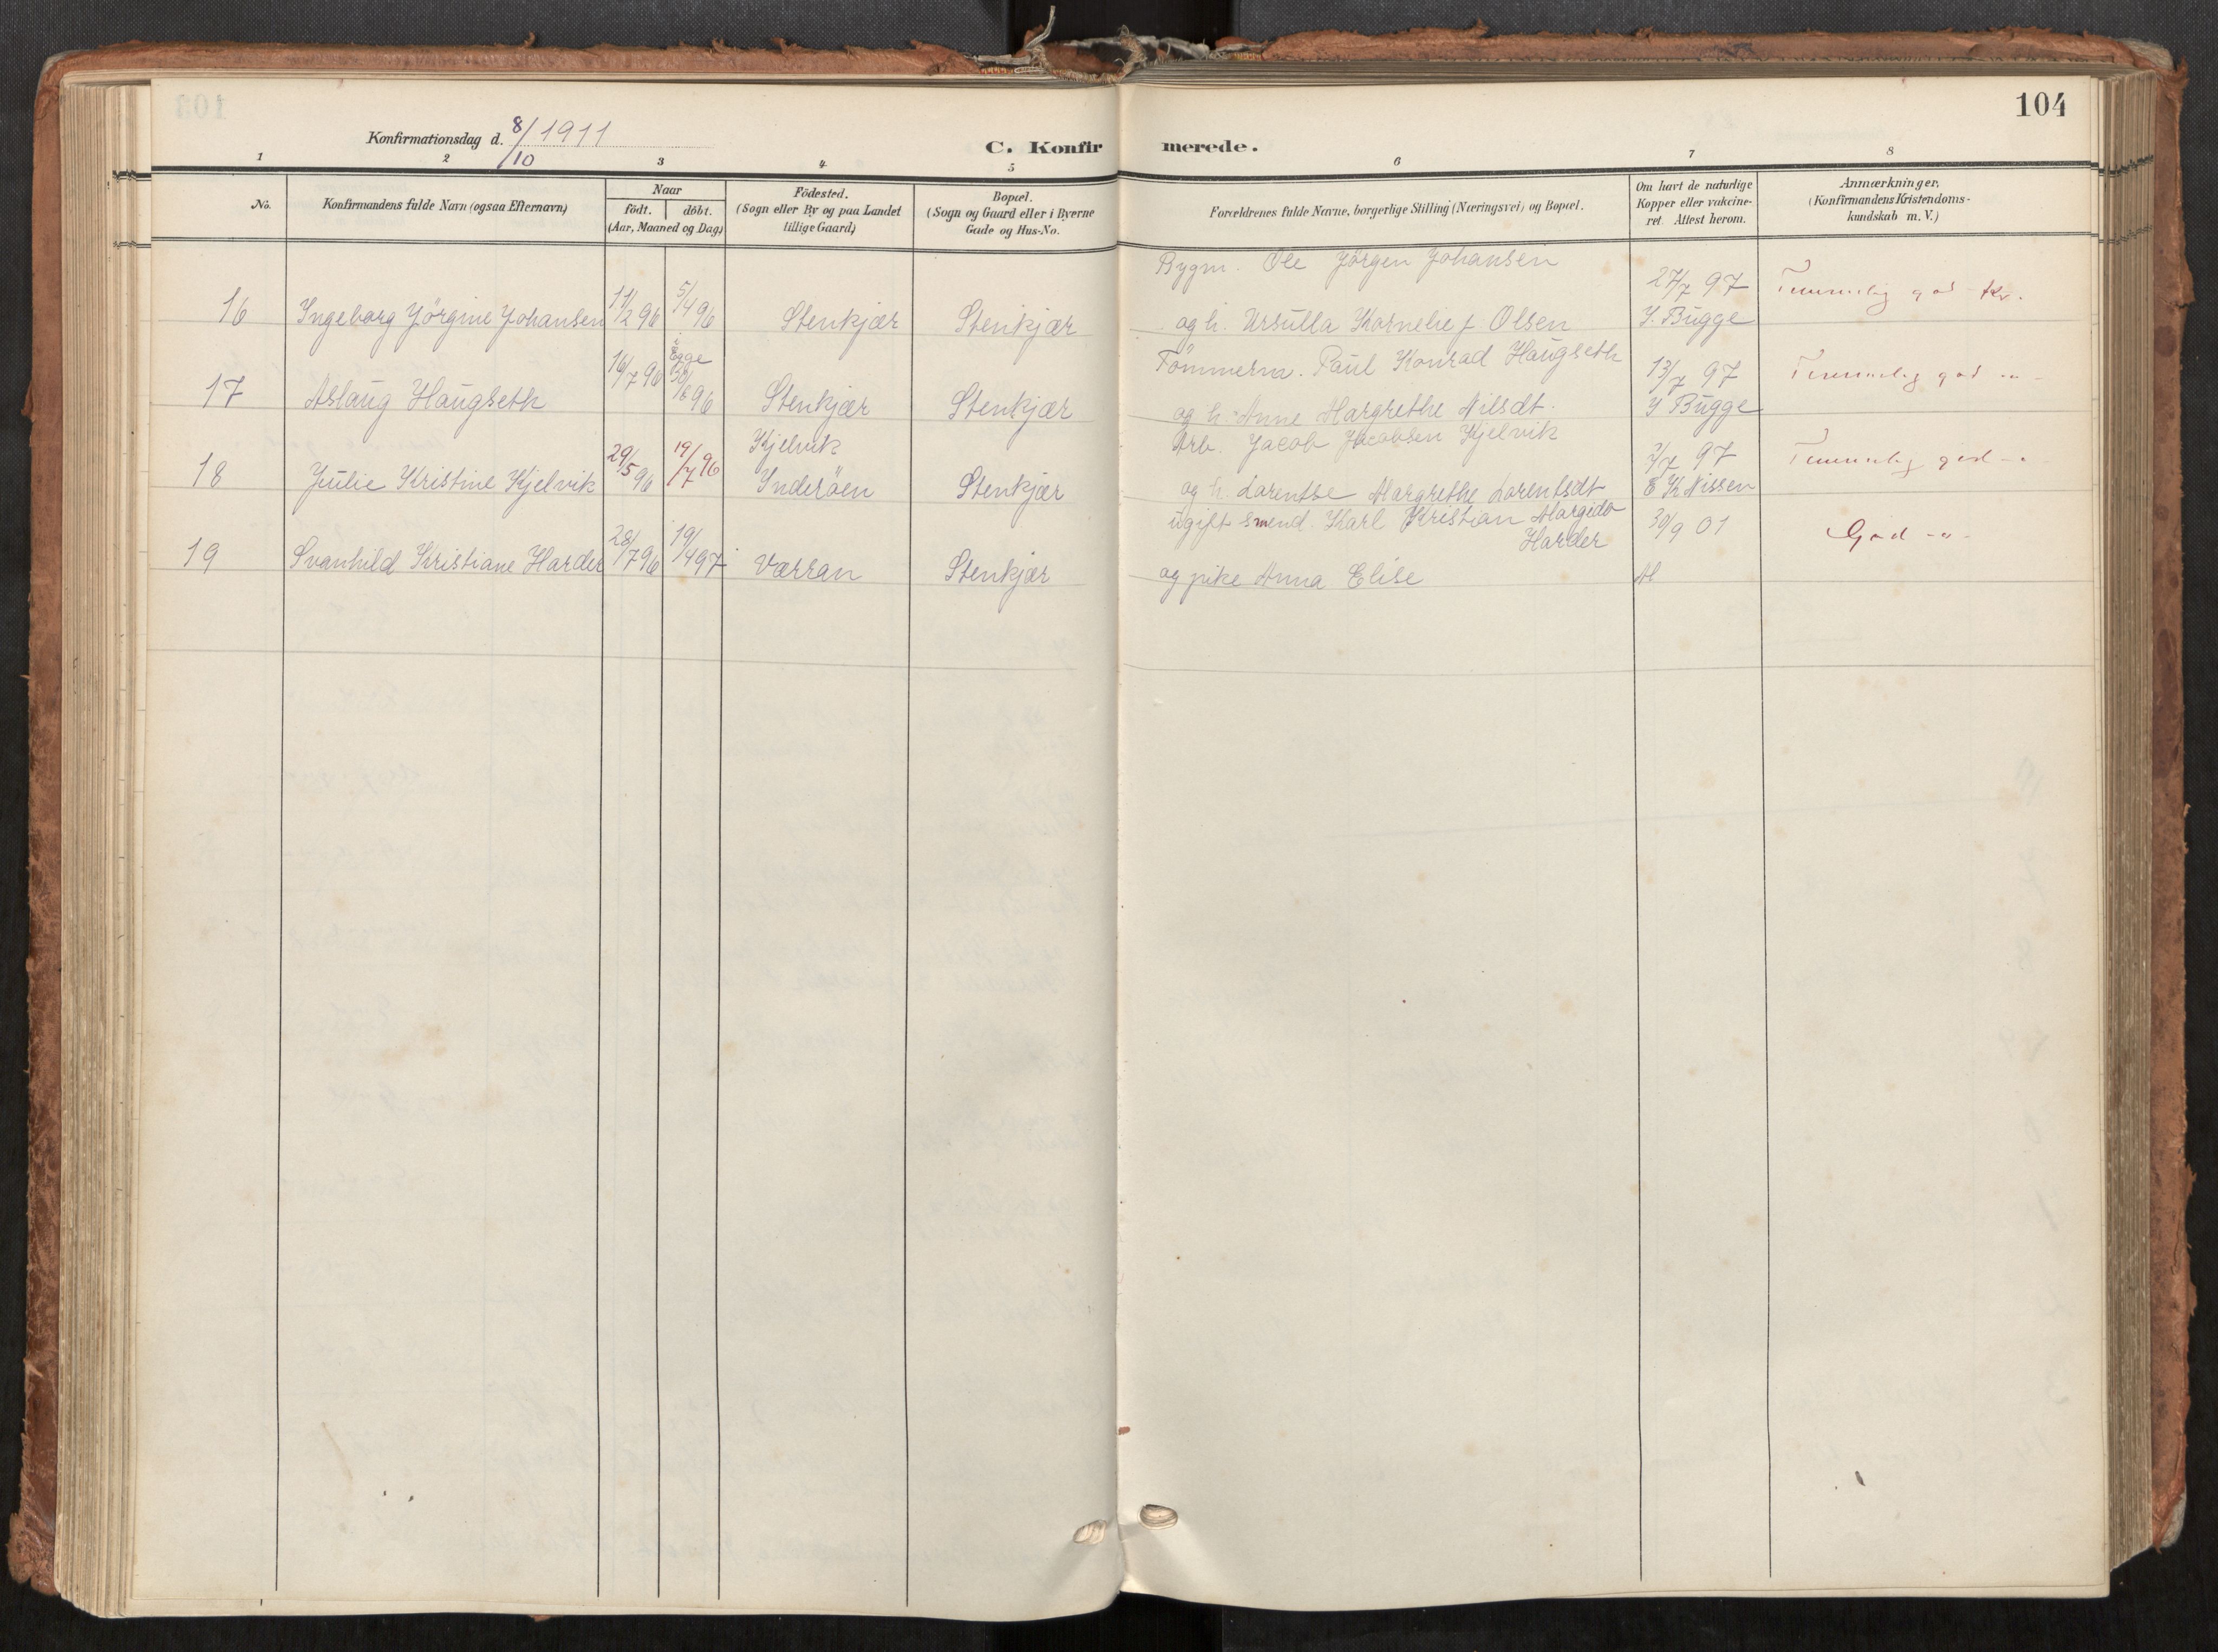 104
Konfirmationsdag d. 8/10 1911
C. Konfirmerede.
1 2 3 4 5 6 7 8
No.
Konfirmandens fulde Navn (ogsaa Efternavn)
Naar
födt. döbt.
(Aar, Maaned og Dag)
Födested.
(Sogn eller By og paa Landet
tillige Gaard)
Bopæl.
(Sogn og Gaard eller i Byerne
Gade og Hus-No.
Forældrenes fulde Navne, borgerlige Stilling (Næringsvei) og Bopæl.
Om havt de naturlige
Kopper eller vakcine-
ret. Attest herom.
Anmærkninger.
(Konfirmandens Kristendoms-
kundskab m. V.)
Bygm. Ole Jörgen Johansen
16 Ingeborg Jörgine Johansen 11/2 96 5/4 96 Stenkjær Stenkjær og h. Ursulla Kornelie f. Olsen 27/7 97 Temmelig god Kr.
I. Bugge
Tömmerm. Paul Konrad Haugseth
17 Aslaug Haugseth 16/7 96 i Egge 30/8 96 Stenkjær Stenkjær og h. Anne Margrethe Nilsdt. 13/7 97 Temmelig god -"-
I Bugge
Arb. Jacob Jacobsen Kjelvik
18 Julie Kristine Kjelvik 29/5 96 19/7 96 Kjelvik Inderöen Stenkjær og h. Larentse Margrethe Larentsdt 3/7 97 Temmelig god -"-
E K Nissen
ugift smend. Karl Kristian Margido
Harder
19 Svanhild Kristiane Harder 28/7 96 19/4 97 Værran Stenkjær og pike Anna Elise 30/9 01 God -"-